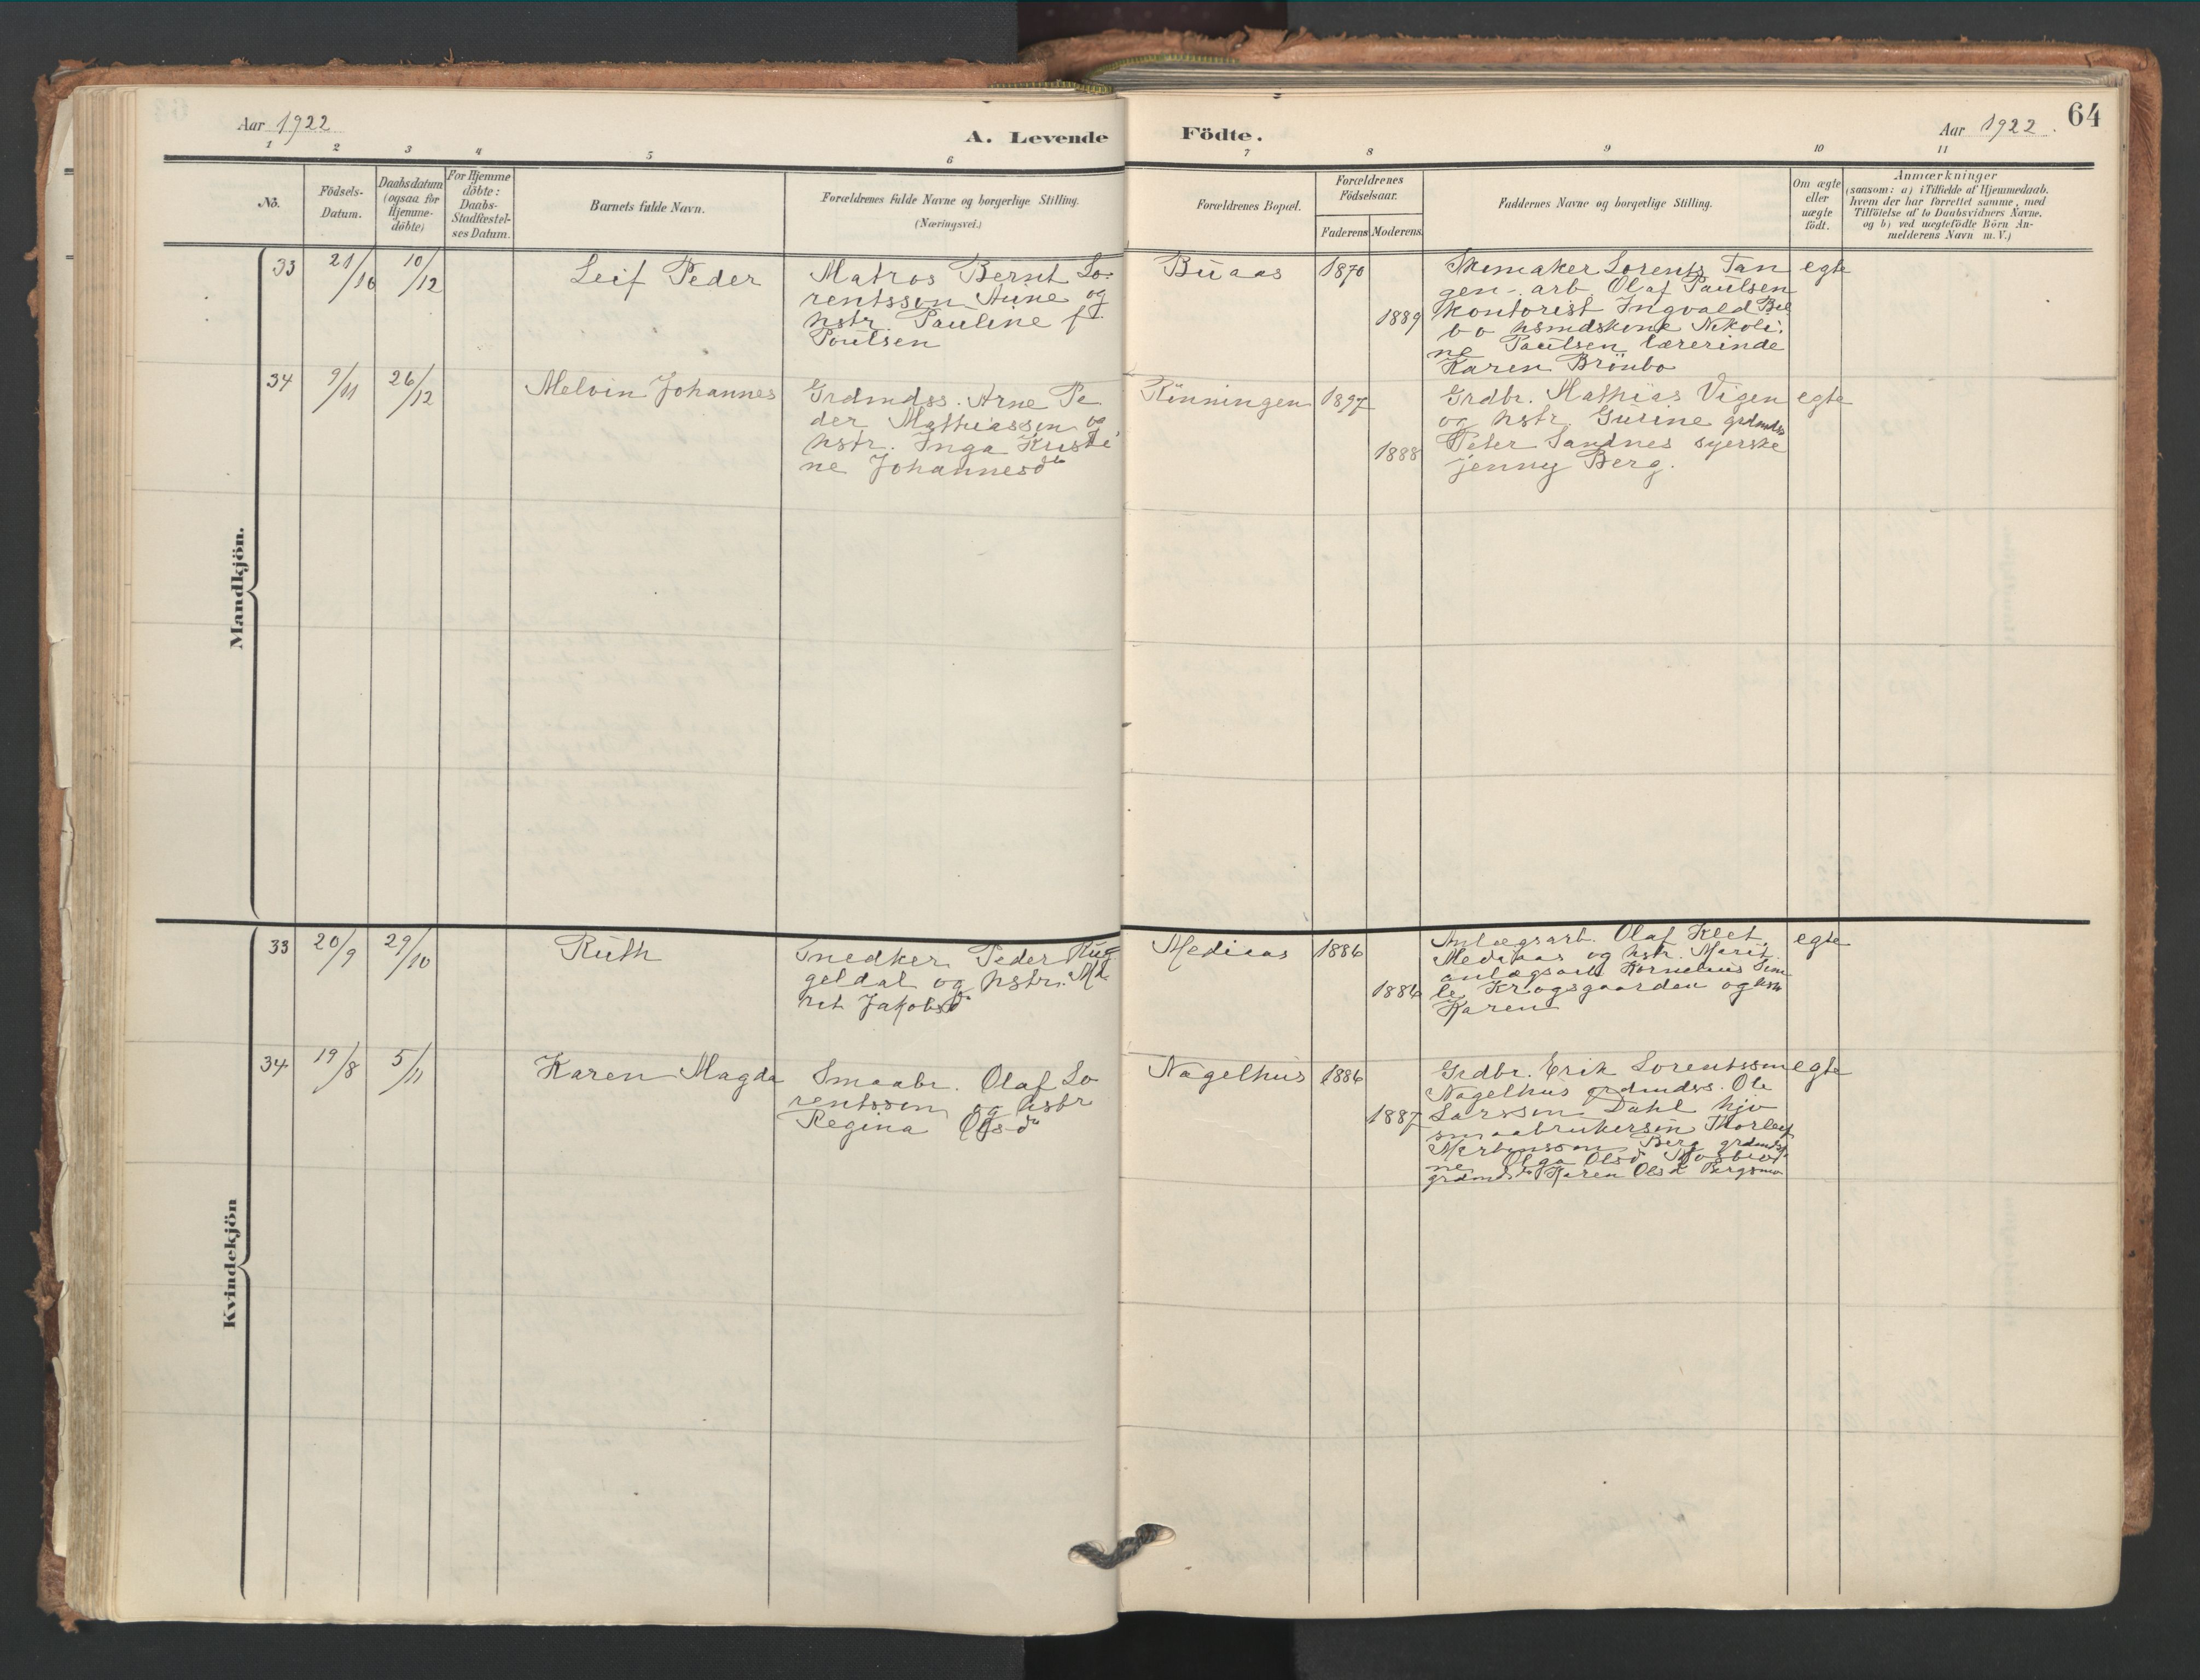 Aar 1922
A. Levende Födte.
Aar 1922.
64
1 2 3 4 5 6 7 8 9 10 11
No.
Födsels-Datum.
Daabsdatum
(ogsaa for
Hjemme-
döbte)
For Hjemme
döbte:
Daabs-
Stadfæstel-
ses Datum.
Barnets fulde Navn.
Forældrenes fulde Navne og borgerlige Stilling.
(Næringsvei.)
Forældrenes Bopæl.
Forældrenes
Födselsaar.
Faderens Moderens
Faddernes Navne og borgerlige Stilling.
Om ægte
eller
uægte
födt.
Anmærkninger
(saasom: a) i Tilfælde af Hjemmedaab.
hvem der har forrettet samme, med
Tilföielse af to Daabsvidners Navne.
og b) ved uægtefödte Börn An-
melderens Navn m. V.)
Mandkjön.
33 21/10 10/12
Leif Peder
Matros Bernt Lo-
rentssen Aune og
hstr. Pauline f.
Poulsen
Buaas
1870
1889
Skomaker Lorents Tan
gen - arb. Olaf Paulsen
kontorist Ingvald Bel
bo Nikoli-
ne Paulsen lærerinde
Karen Brönbo
egte
34 9/11 26/12
Melvin Johannes
Grdmdss. Arne Pe
der Mathiassen og
hstr. Inga Kristi
ne Johannesdtr
Rönningen
1897
1888
Grdbr. Mathias Vigen
og hstr. Gurine grdmdss
Peter Sandnes syerske
jenny Berg.
egte
Kvindekjön
33 20/9 29/10
Ruth
Snedker Peder Rug
geldal og hstr. Ma
rit Jakobsdtr
Mediaas
1886
1886
Anlægsarb. Olaf Klet
Mediaas og hstr. Marit
anlægsarb Kornelius Sem
le Krogsgaarden og hstr
Karen
egte
34 19/8 5/11
Karen Magda
Smaabr. Olaf Lo
rentssen og hstr
Regina Olsdtr
Nagelhus
1886
1887
Grdbr. Erik Lorentssen
Nagelhus grdmdss. Ole
Larssen Dahl hjv
smaabrukersön Thorleif
Mortenssen Berg
Olga Olsd
Karen Olsd Bergsmo
egte